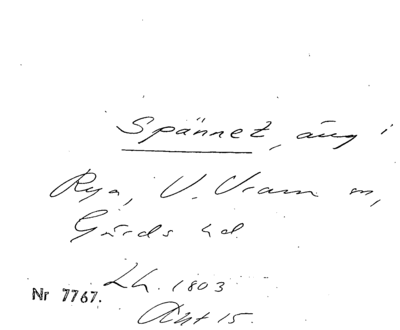 Spännet, äng i
Rya, V. Vram sn,
Gärds hd.
Lh. 1803
Nr 7767.
Akt 15.